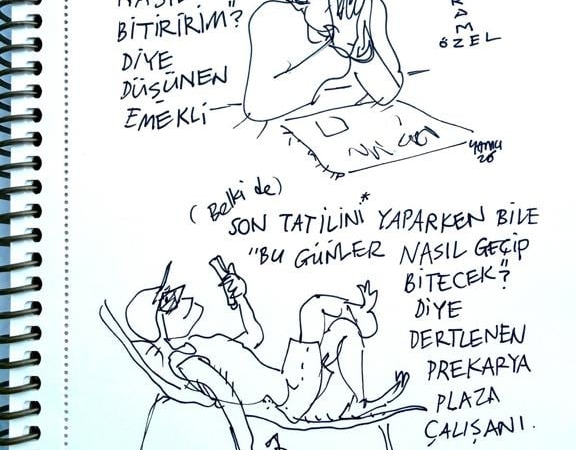 BİTİRİRİM?"
DİYE
DÜŞÜNEN
EMEKLİ
ÖZEL
(Belki de)
SON TATİLİNİ* YAPARKEN BİLE
"BU GÜNLER NASIL GEÇİP
BİTECEK?"
DİYE
DERTLENEN
PREKARYA
PLAZA
ÇALIŞANI.